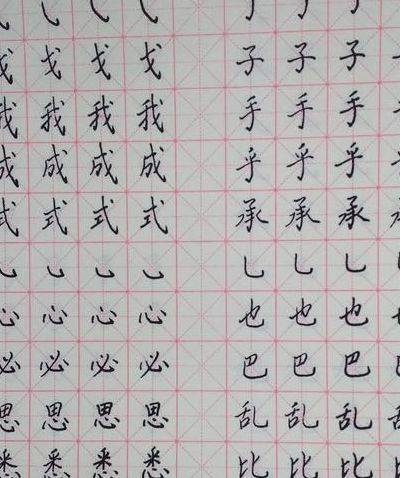 戈 戈 戈 戈 子 子 子 子
我 我 我 我 手 手 手 手
成 成 成 成 乎 乎 乎 乎
式 式 式 式 承 承 承 承
心 心 心 心 也 也 也 也
必 必 必 必 巴 巴 巴 巴
思 思 思 思 乱 乱 乱 乱
悉 悉 悉 悉 比 比 比 比